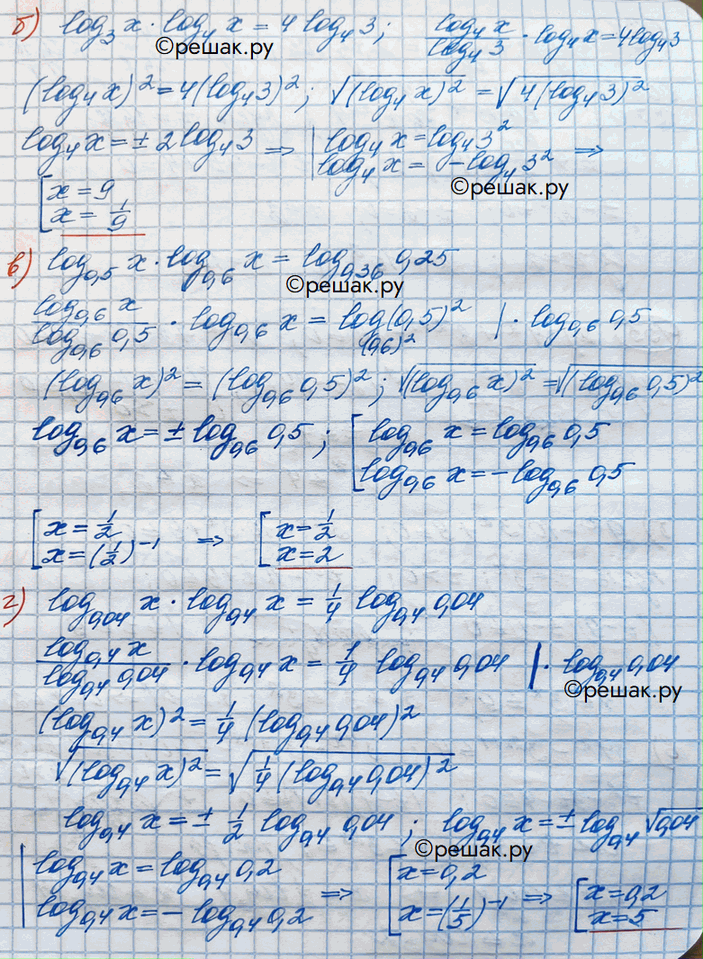 б) log₃ x · log₄ x = 4 log₄ 3; log₄ x / log₄ 3 · log₄ x = 4 log₄ 3
©решак.ру
(log₄ x)² = 4(log₄ 3)²; √(log₄ x)² = √4(log₄ 3)²
log₄ x = ± 2 log₄ 3 => | log₄ x = log₄ 3² =>
log₄ x = - log₄ 3²
©решак.ру
[ x = 9
x = 1/9
в) log₀,₅ x · log₀,₆ x = log₀,₃₆ 0,25
©решак.ру
log₀,₆ x / log₀,₆ 0,5 · log₀,₆ x = log₍₀,₆₎² (0,5)² | · log₀,₆ 0,5
(log₀,₆ x)² = (log₀,₆ 0,5)²; √(log₀,₆ x)² = √(log₀,₆ 0,5)²
log₀,₆ x = ± log₀,₆ 0,5; [ log₀,₆ x = log₀,₆ 0,5
log₀,₆ x = - log₀,₆ 0,5
[ x = 1/2 => [ x = 1/2
x = (1/2)⁻¹ x = 2
г) log₀,₀₄ x · log₀,₄ x = 1/4 log₀,₄ 0,04
log₀,₄ x / log₀,₄ 0,04 · log₀,₄ x = 1/4 log₀,₄ 0,04 | · log₀,₄ 0,04
©решак.ру
(log₀,₄ x)² = 1/4 (log₀,₄ 0,04)²
√(log₀,₄ x)² = √1/4 (log₀,₄ 0,04)²
log₀,₄ x = ± 1/2 log₀,₄ 0,04; log₀,₄ x = ± log₀,₄ √0,04
©решак.ру
| log₀,₄ x = log₀,₄ 0,2 => [ x = 0,2 => [ x = 0,2
log₀,₄ x = - log₀,₄ 0,2 x = (1/5)⁻¹ x = 5